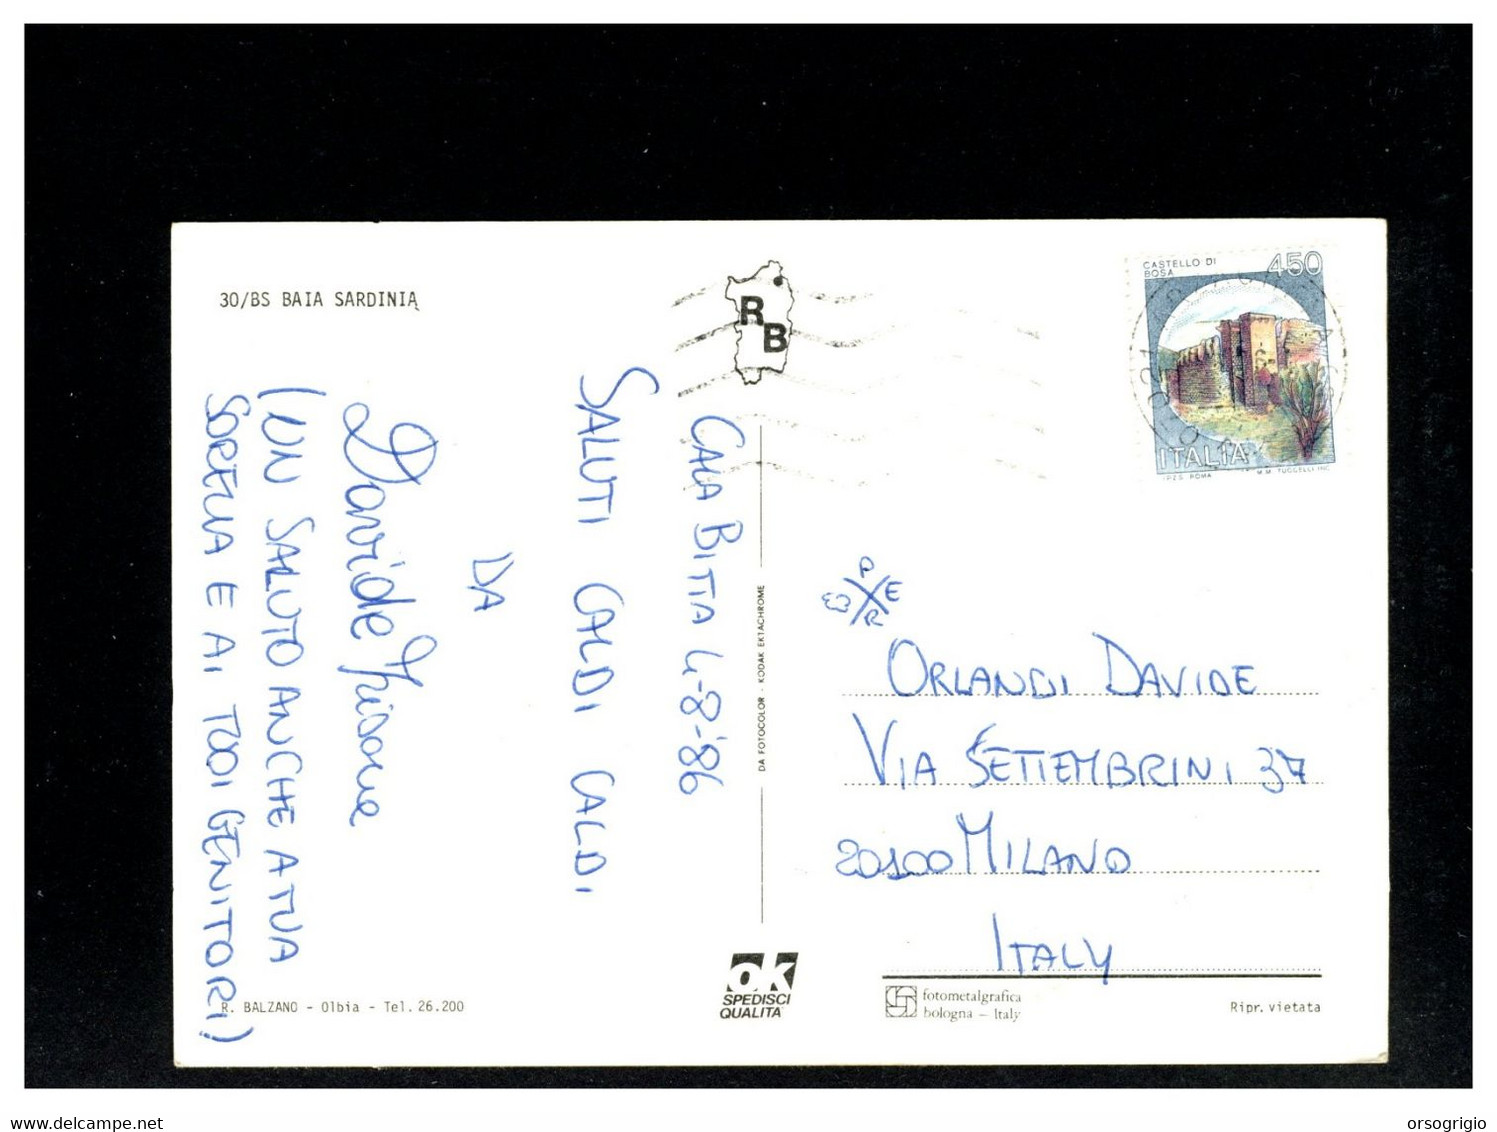 30/BS BAIA SARDINIA
R
B
CASTELLO DI
BOSA
450
ITALIA
I.P.Z.S. ROMA
M.M. TUCCELLI INC.
CALA BITTA 4-8-'86
SALUTI CALDI CALDI
DA
Davide
(UN SALUTO ANCHE A TUA
SORELLA E AI TUOI GENITORI)
DA FOTOCOLOR - KODAK EKTACHROME
PER
ORLANDI DAVIDE
VIA SETTEMBRINI 37
20100 MILANO
ITALY
R. BALZANO - Olbia - Tel. 26.200
OK
SPEDISCI
QUALITA'
fotometalgrafica
bologna - Italy
Ripr. vietata
delcampe.net
orsogrigio